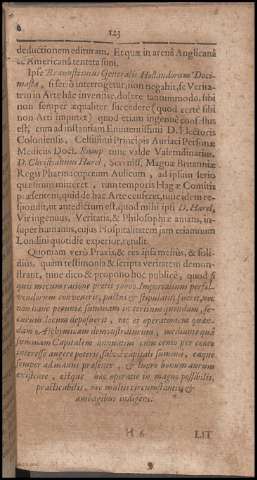 123
deductionem editurum. Et quæ in arenâ Anglicanâ
& Americanâ tentata sint.
Ipse Braunstinius Generalis Hollandorum Doci-
masta, si seriò interrogetur, non negabit, se Verita-
tem in Arte hâc invenisse, dolere tantummodò, sibi
non semper æqualiter succedere (quod certè sibi
non Arti imputet) quod etiam ingenuè confessus
est, cum ad instantiam Eminentissimi D. Electoris
Coloniensis, Celsissimi Principis Auriaci Personæ
Medicus Doct. Rump tunc valde Valetudinarius,
D. Christianum Harel, Sereniss. Magnæ Britanniæ
Regis Pharmacopœum Aulicum, ad ipsum seriò
quæsitum mitteret, tum temporis Hagæ Comitis
præsentem, quid de hac Arte censeret, tunc idem re-
spondit, ut antedictum est, quod mihi ipsi D. Harel,
Vir ingenuus, Veritatis, & Philosophiæ amans, in-
super humanus, cujus Hospitalitatem jam etiamnum
Londini quotidie experior, retulit.
Quoniam verò Praxis, & res ipsa melius, & soli-
dius, quàm testimoniis & scripta veritatem demon-
strant, tunc dico & propono hoc publicè, quod si
quis mecum ratione pratii coram Imperialium persol-
vendorum convenerit, pactus & stipulatus fuerit, nec
non hanc pecuniæ summam in tertium quendam, se-
curum locum deposuerit, hic ei operationem quan-
dam Alchymicam demonstraturum, mediante quâ
summam Capitalem annuatim cum cento per cento
interesse augere poterit, salvâ capitali summâ, eaque
semper ad manus præsente, & lucro bonum aurum
existente, estque hæc operatio in magno possibilis,
practicabilis, nec multis circumstantiis &
ambagibus indigens.
H 6
LIT